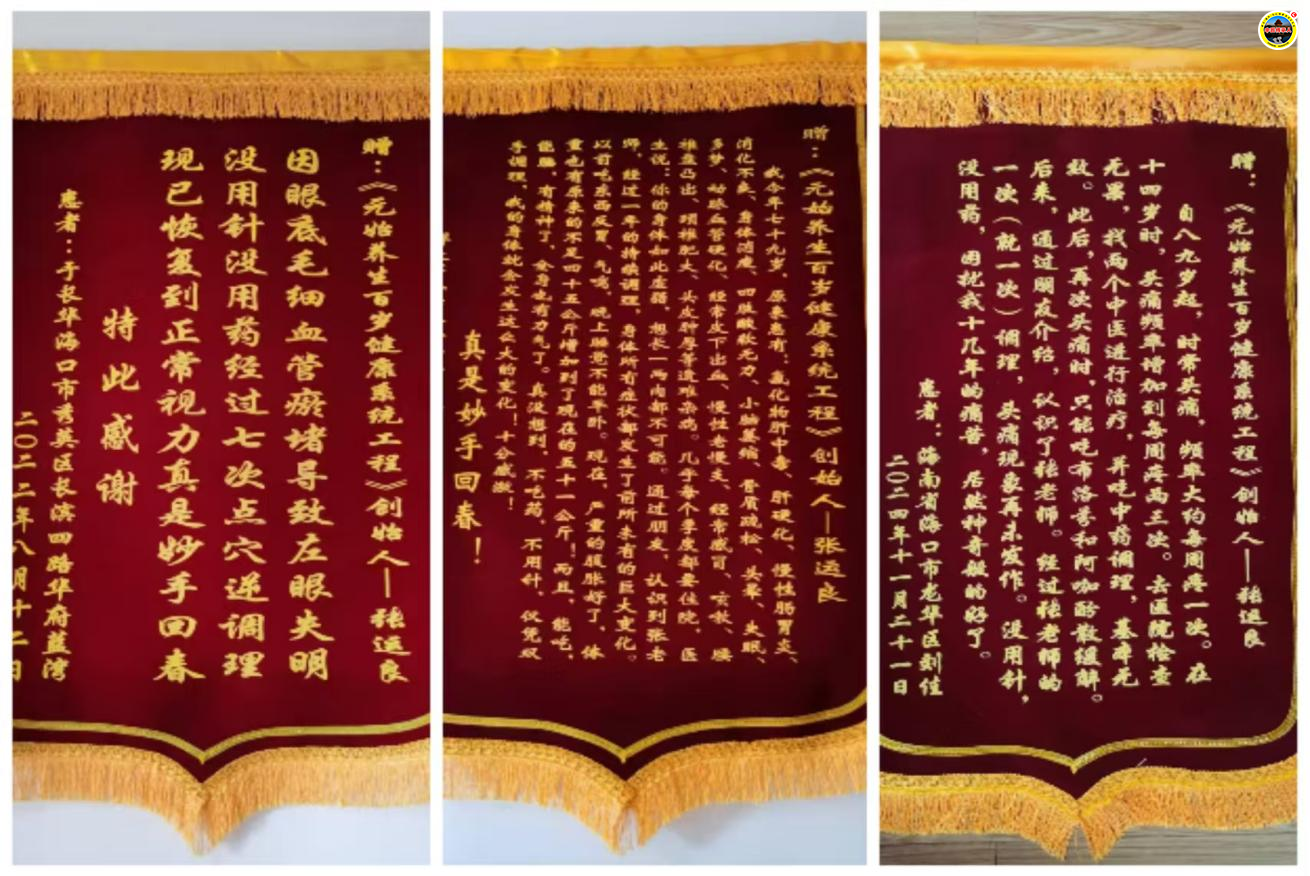 赠:《元始养生百岁健康系统工程》创始人—张运良
因眼底毛细血管瘀堵导致左眼失明
没用针没用药经过七次点穴递调理
现已恢复到正常视力真是妙手回春
特此感谢
患者:于长华海口市秀英区长滨四路华府蓝湾
二〇二二年八月十二日
赠:《元始养生百岁健康系统工程》创始人—张运良
我今年七十九岁,原来患有:氟化物肝中毒、肝硬化、慢性肠胃炎、
消化不良、身体消瘦、四肢酸软无力、小脑萎缩、骨质疏松、头晕、失眠、
多梦、动脉血管硬化、经常皮下出血、慢性老慢支、经常感冒、咳嗽、腰
椎盘凸出、颈椎肥大、头皮肿厚等疑难杂病。几乎每个季度都要住院。医
生说:你的身体如此虚弱,想长一两肉都不可能。通过朋友,认识到张老
师,经过一年的持续调理,身体所有症状都发生了前所未有的巨大变化。
以前吃东西反胃、气喘,晚上睡觉不能平卧。现在,严重的腹胀好了,体
重也有原来的不足四十五公斤增加到了现在的五十一公斤!而且,能吃、
能睡、有精神了,全身也有力气了。真没想到,不吃药、不用针、仅凭双
手调理,我的身体就会发生这么大的变化!十分感激!
真是妙手回春!
赠:《元始养生百岁健康系统工程》创始人—张运良
自八九岁起,时常头痛,频率大约每周疼一次。在
十四岁时,头痛频率增加到每周疼两三次。去医院检查
无果,找两个中医进行治疗,并吃中药调理,基本无
效。此后,再次头痛时,只能吃布洛芬和阿咖酚散缓解。
后来,通过朋友介绍,认识了张老师。经过张老师的
一次(就一次)调理,头痛现象再未发作。没用针,
没用药,困扰我十几年的痛苦,居然神奇般的好了。
患者:海南省海口市龙华区刘佳
二〇二四年十一月二十一日